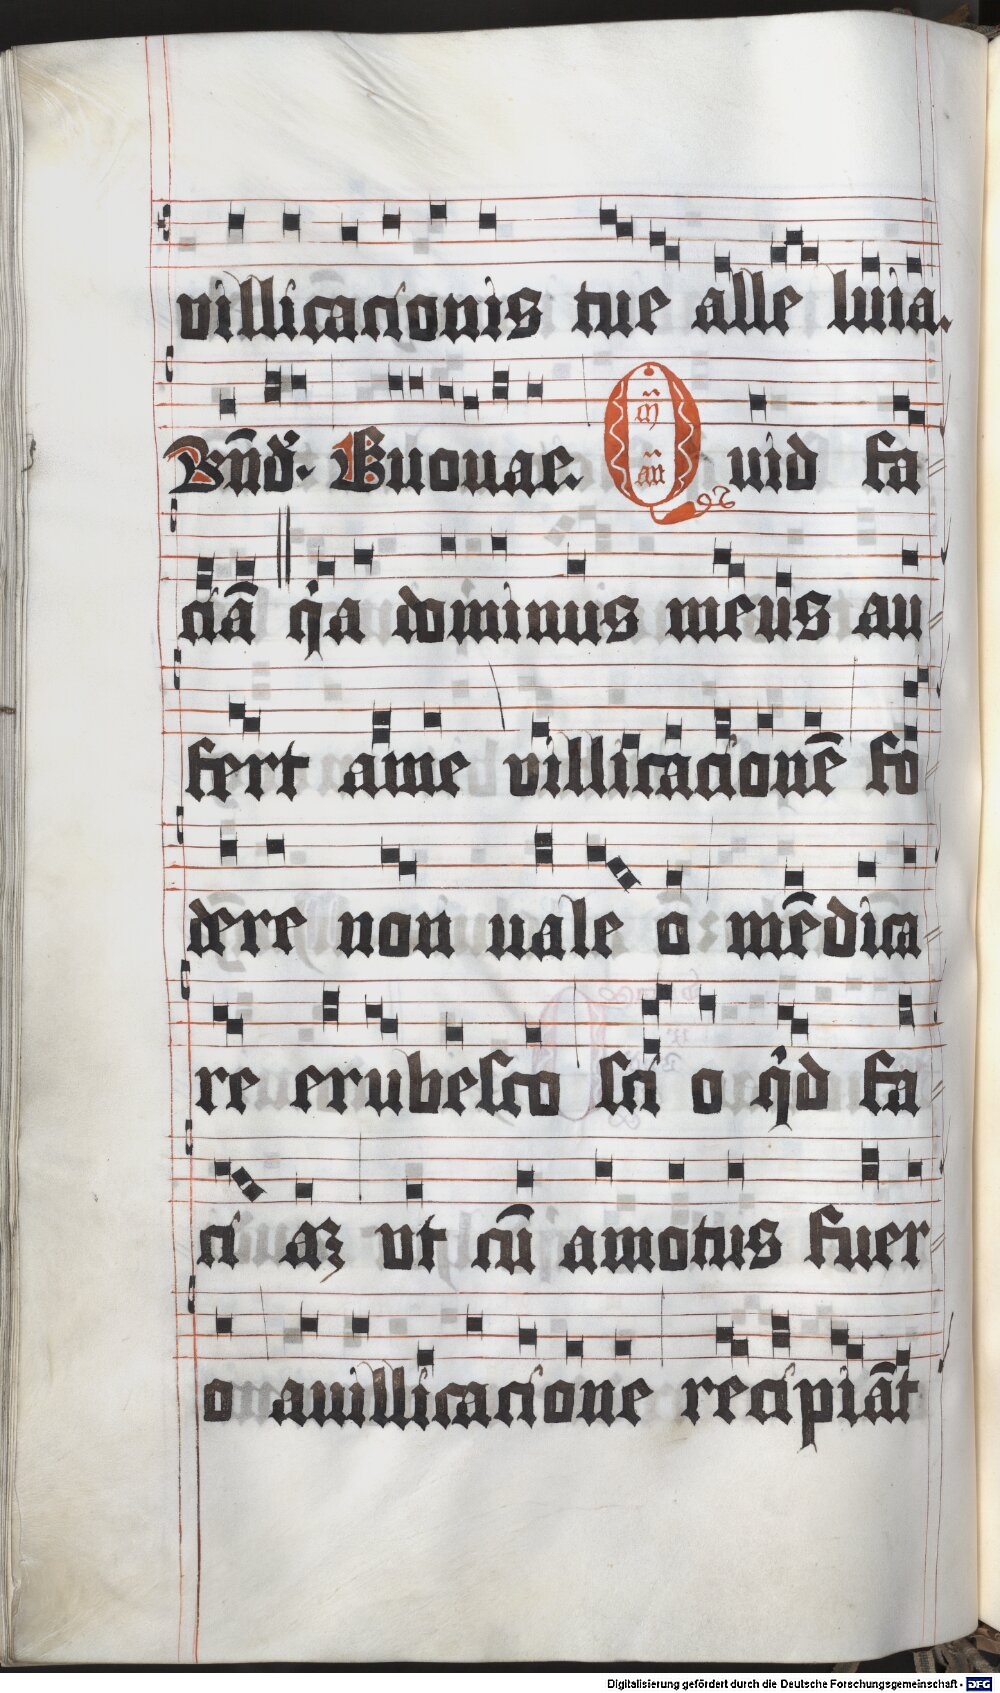 villicacionis tue alle luia.
Bñd̃. Euouae. Quid fa
ciā qͥa dominus meus au
fert ame villicacionē fo
dere non uale o mēdica
re erubesco sci o qͥd fa
ci aꝫ vt cū amotus fuer
o auillicacione recipiāt
Digitalisierung gefördert durch die Deutsche Forschungsgemeinschaft - DFG